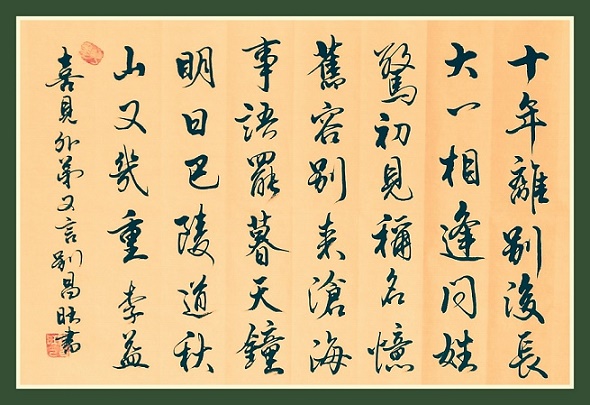 十年離別後長
大一相逢問姓
驚初見稱名憶
舊容別來滄海
事語罷暮天鐘
明日巴陵道秋
山又幾重 李益
喜見外弟又言別昌書